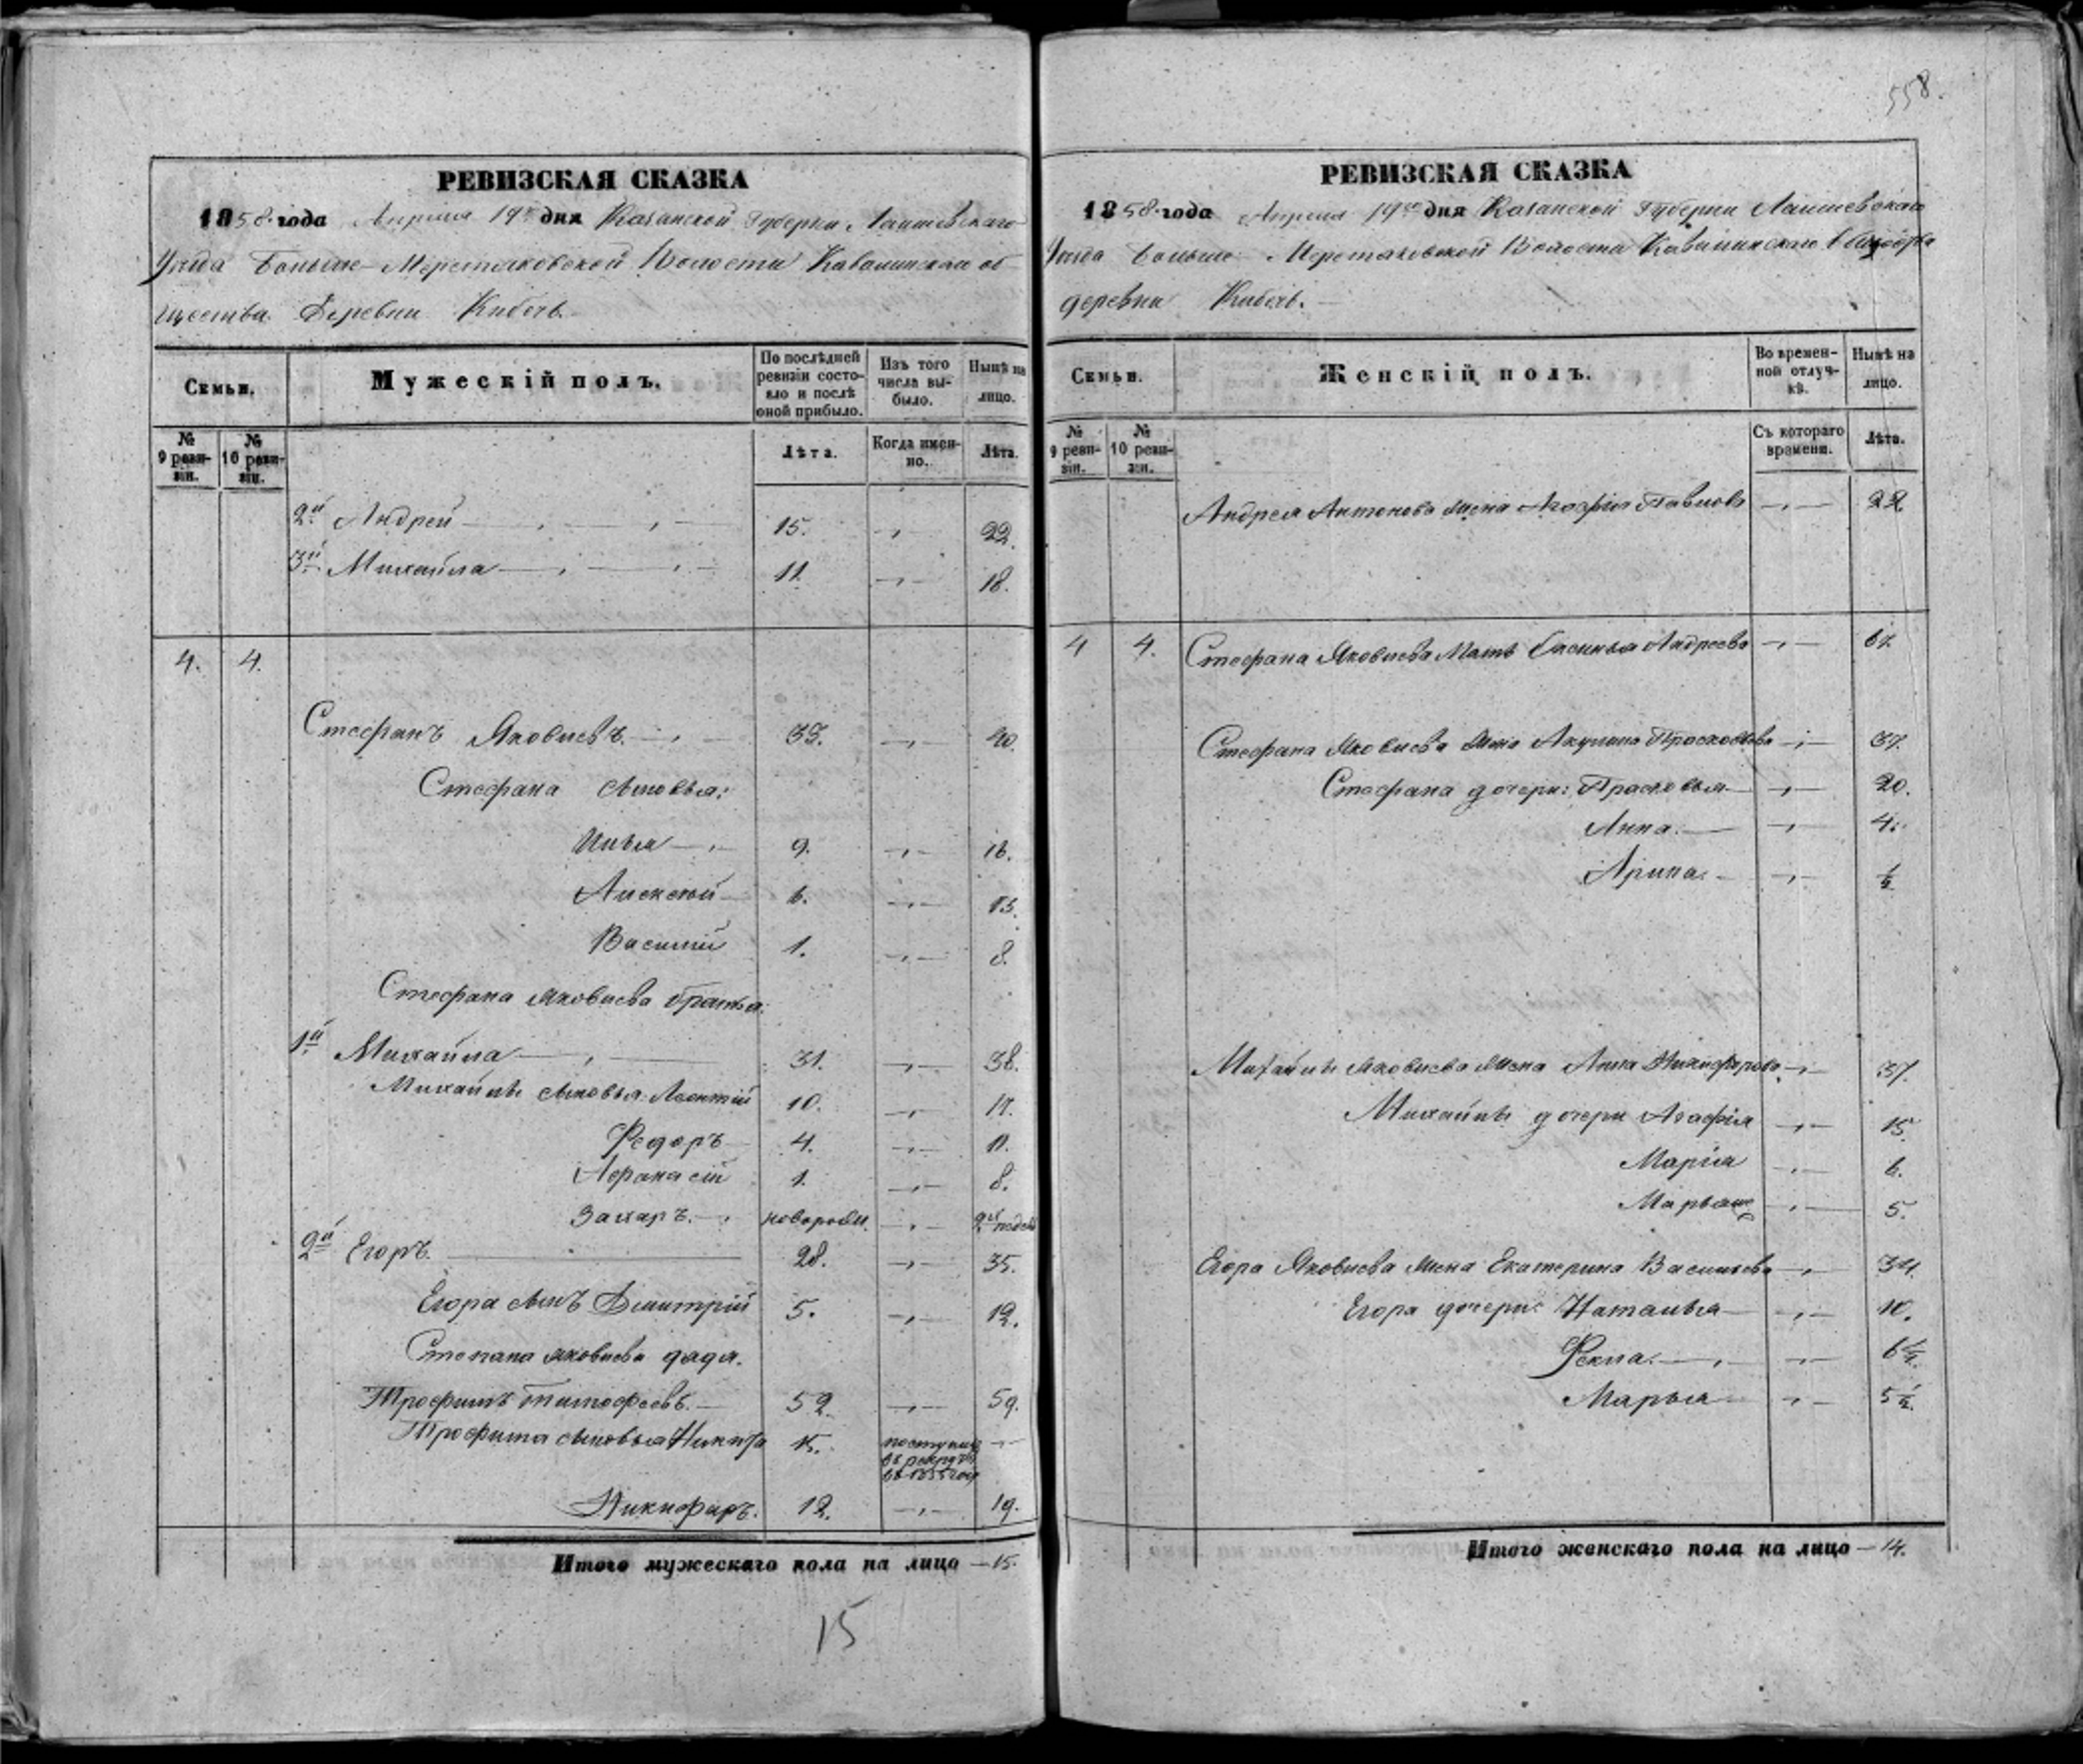 558.
РЕВИЗСКАЯ СКАЗКА
1858. года Апреля 19го дня Казанской Губерни Лаишевскаго
Уезда Больше- Меретяковской Волости Кавалинскаго об-
щества Деревни Кибечь.
Семьи.
Мужескій полъ.
По послѣдней ревизіи состояло и послѣ оной прибыло.
Изъ того числа выбыло.
Нынѣ на лицо.
№ 9 ревизіи.
№ 10 ревизіи.
Лѣта.
Когда именно.
Лѣта.
2й Андрей 15. 22.
3й Михайла 11. 18.
4. 4.
Стефанъ Яковлевъ. 33. 40.
Стефана сыновья:
Илья 9. 16.
Алексѣй 6. 13.
Василій 1. 8.
Стефана Яковлева братья:
1й Михайла 31. 38.
Михайлы сыновья Леонтій 10. 17.
Федоръ 4. 11.
Афанасій 1. 8.
Захаръ. новорожд. 2х недель
2й Егоръ. 28. 35.
Егора сынъ Дмитрій 5. 12.
Степана Яковлева дядя.
Трофимъ Тимофеевъ. 52. 59.
Трофима сыновья Никита 15. поступилъ
въ рекруты
въ 1855 году
Никифаръ. 12. 19.
Итого мужескаго пола на лицо — 15.
15
РЕВИЗСКАЯ СКАЗКА
1858. года Апреля 19го дня Казанской Губерни Лаишевскаго
Уезда Больше- Меретяковской Волости Кавалинскаго Общества
деревни Кибечь.
Семьи.
Женскій полъ.
Во временной отлучкѣ.
Нынѣ на лицо.
№ 9 ревизіи.
№ 10 ревизіи.
Съ котораго времени.
Лѣта.
Андрея Антонова жена Агафія Павлова 22
4 4. Стефана Яковлева Мать Андреева 67.
Стефана Яковлева жена Акулина 37.
Стефана дочери: Прасковья 20.
Анна. 4.
Арина. ½
Михайлы Яковлева жена Анна Никифарова 37.
Михайлы дочери Агафія 15.
Марія 6.
5.
Егора Яковлева жена Екатерина Васильева 34.
Егора дочери: Наталья 10.
Фекла. 6½.
Марья 5½.
Итого женскаго пола на лицо — 14.